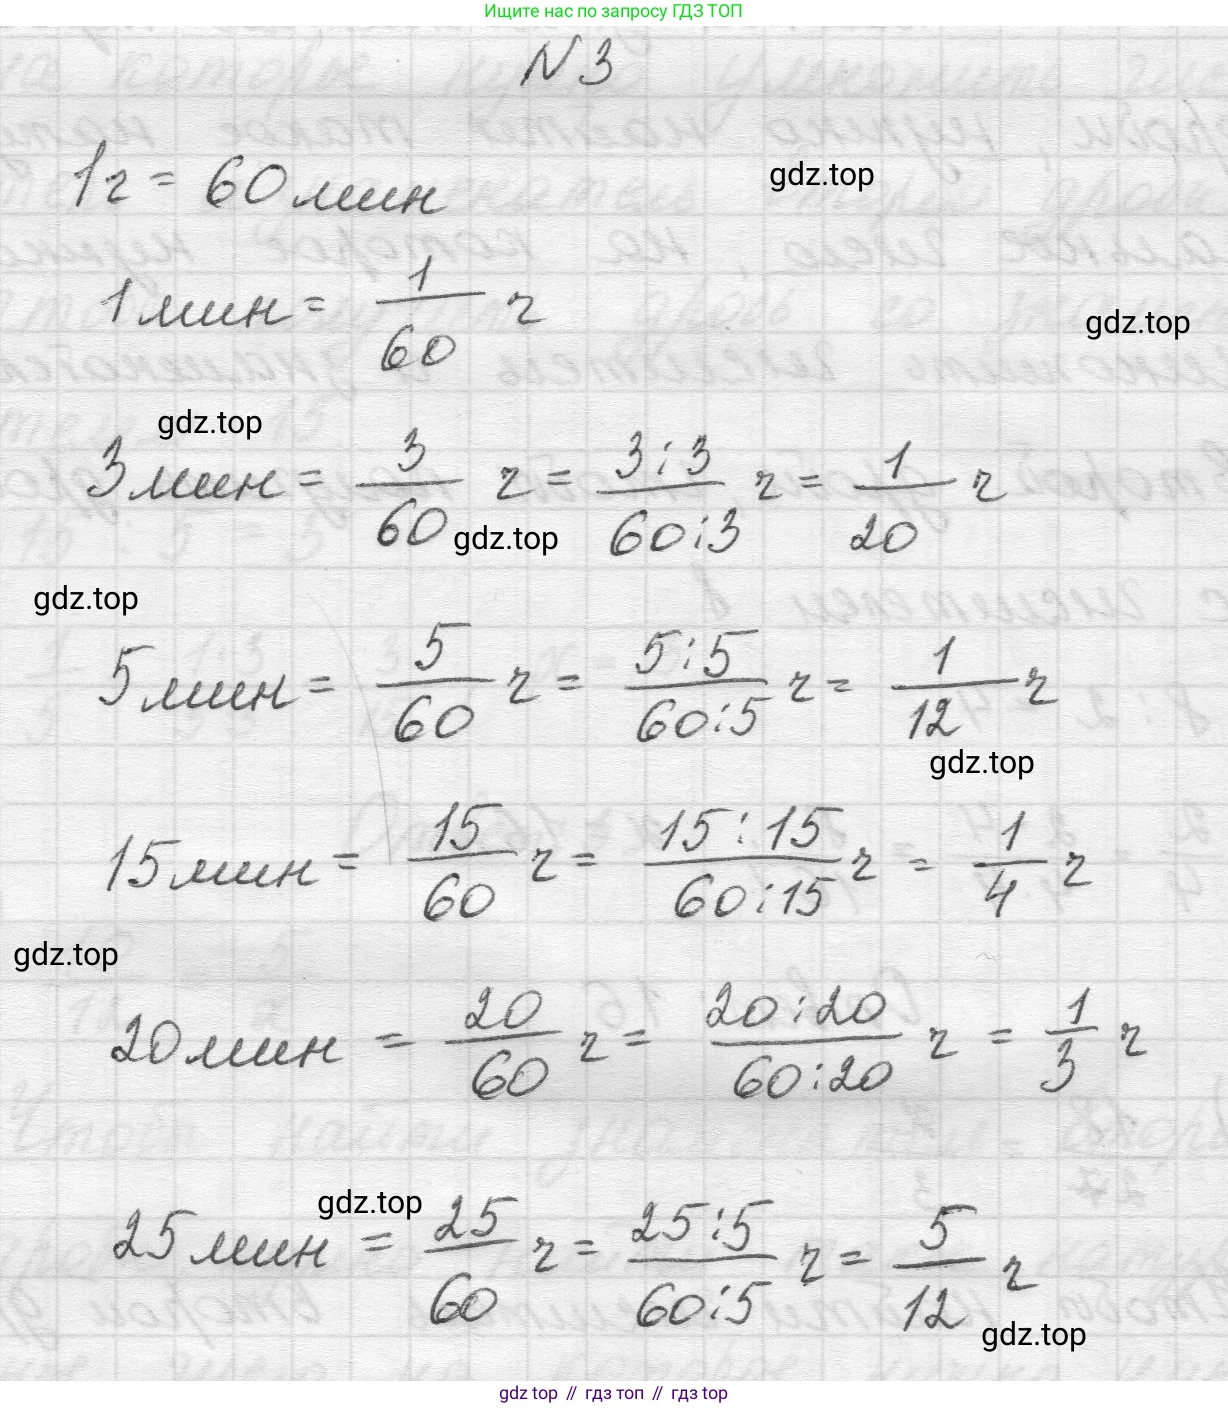 Ищите нас по запросу ГДЗ ТОП
N 3
1ч = 60 мин
gdz.top
1 мин = 1/60 ч
gdz.top
gdz.top
3 мин = 3/60 ч = 3:3/60:3 ч = 1/20 ч
gdz.top
gdz.top
5 мин = 5/60 ч = 5:5/60:5 ч = 1/12 ч
gdz.top
15 мин = 15/60 ч = 15:15/60:15 ч = 1/4 ч
gdz.top
20 мин = 20/60 ч = 20:20/60:20 ч = 1/3 ч
gdz.top
25 мин = 25/60 ч = 25:5/60:5 ч = 5/12 ч
gdz.top
gdz top // гдз топ // гдз top